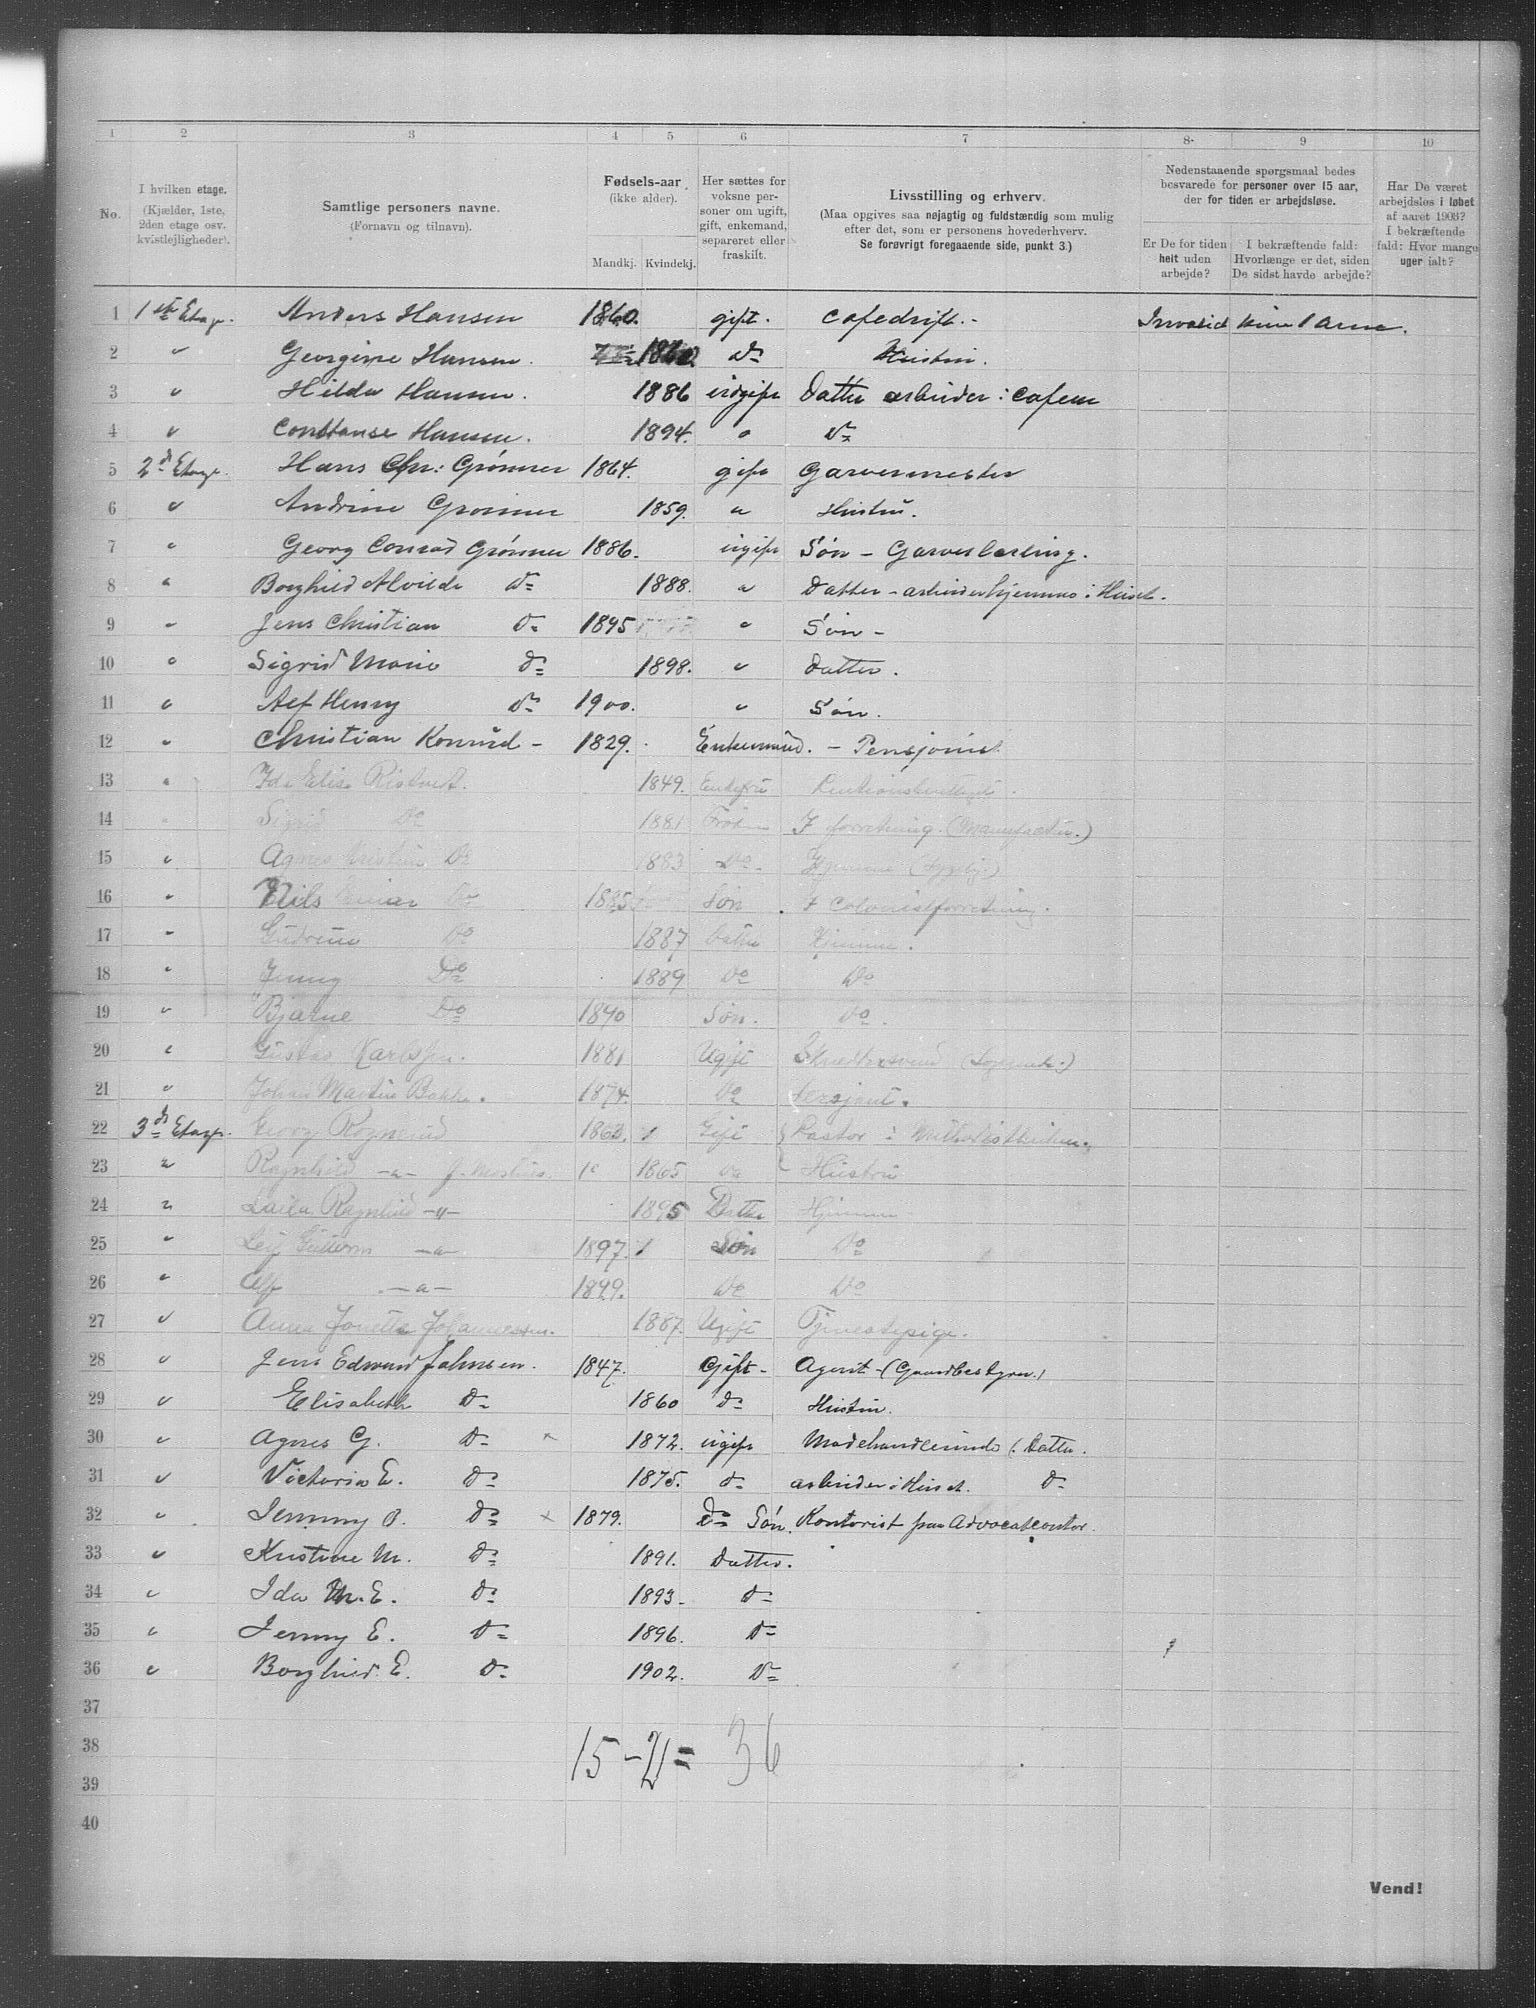 1 2 3 4 5 6 7 8 9 10
No.
I hvilken etage.
(Kjælder, 1ste,
2den etage osv.
kvistlejligheder).
Samtlige personers navne.
(Fornavn og tilnavn).
Fødsels-aar
(ikke alder).
Mandkj. Kvindekj.
Her sættes for
voksne per-
soner om ugift,
gift, enkemand,
separeret eller
fraskilt.
Livsstilling og erhverv.
(Maa opgives saa nøjagtig og fuldstændig som mulig
efter det, som er personens hovederhverv.
Se forøvrigt foregaaende side, punkt 3.)
Nedenstaaende spørgsmaal bedes
besvarede for personer over 15 aar,
der for tiden er arbejdsløse.
Er De for tiden
helt uden
arbejde?
I bekræftende fald:
Hvorlænge er det, siden
De sidst havde arbejde?
Har De været
arbejdsløs i løbet
af aaret 1903?
I bekræftende
fald: Hvor mange
uger ialt?
1 1ste Etage. Anders Hansen 1860. gift. Cafedrift. Invalid 1 Arm.
2 " Georgine Hansen. Do Hustru.
3 " Hilda Hansen. 1886 ugift Datter arbeider i Cafeen
4 " Constanse Hansen. 1894. " Do
5 2d Etage. Hans Chr: Grönner 1864. gift Garvermester
6 " Andrine Grönner 1859. " Hustru.
7 " Georg Conrad Grönner 1886. ugift Søn - Garverlærling.
8 " Borghild Alvilde Do 1888. " Datter - arbeider hjemme i Huset.
9 " Jens Christian Do 1895 " Søn -
10 " Sigrid Marie Do 1898. " Datter.
11 " Alf Henry Do 1900. " Søn.
12 " Christian Konrud - 1829. Enkemand. - Pensjonist
13 " Ida Elise 1849. Enkefru
14 " Sigrid Do 1881 Frøken I forretning (Manufactur.)
15 " Agnes Kristine Do 1883 Do. Hjemme
16 " Nils Einar Do 1885 Søn I Colonialforretning.
17 " Gudrun Do 1887 Datter Hjemme.
18 " Jenny Do 1889 Do Do
19 " Bjarne Do 1890 Søn. Do.
20 " Gustav Karlsen. 1881 Ugift Skræddersvend
21 " Johan Martin Bakke. 1874. Do Sersjant.
22 3die Etage. Georg Rognerud Gift Pastor i Methodistkirken.
23 " Ragnhild -"- 1865 Do Hustru
24 " Laila Ragnhild -"- 1895 Datter Hjemme
25 " Leif Guttorm -"- 1897. Søn Do
26 " Alf -"- 1899. Do Do
27 " Anna Jonette Johannessen. 1887. Ugift Tjenestepige.
28 " Jens Edward Johnsen. 1847. Gift - Agent - (Gaardbestyrer.)
29 " Elisabeth Do 1860 Do Hustru.
30 " Agnes G. Do × 1872. ugift Modehandlerinde (: Datter.
31 " Victoria E. Do 1875. Do arbeider i Huset. Do
32 " Jemmy O. Do × 1879. Do Søn. Kontorist paa Advocatcontor.
33 " Kristine M. Do 1891. Datter.
34 " Ida M. E. Do 1893. Do
35 " Jenny E. Do 1896. Do
36 " Borghild. E. Do 1902. Do
37
38
15 - 21 = 36
39
40
Vend!